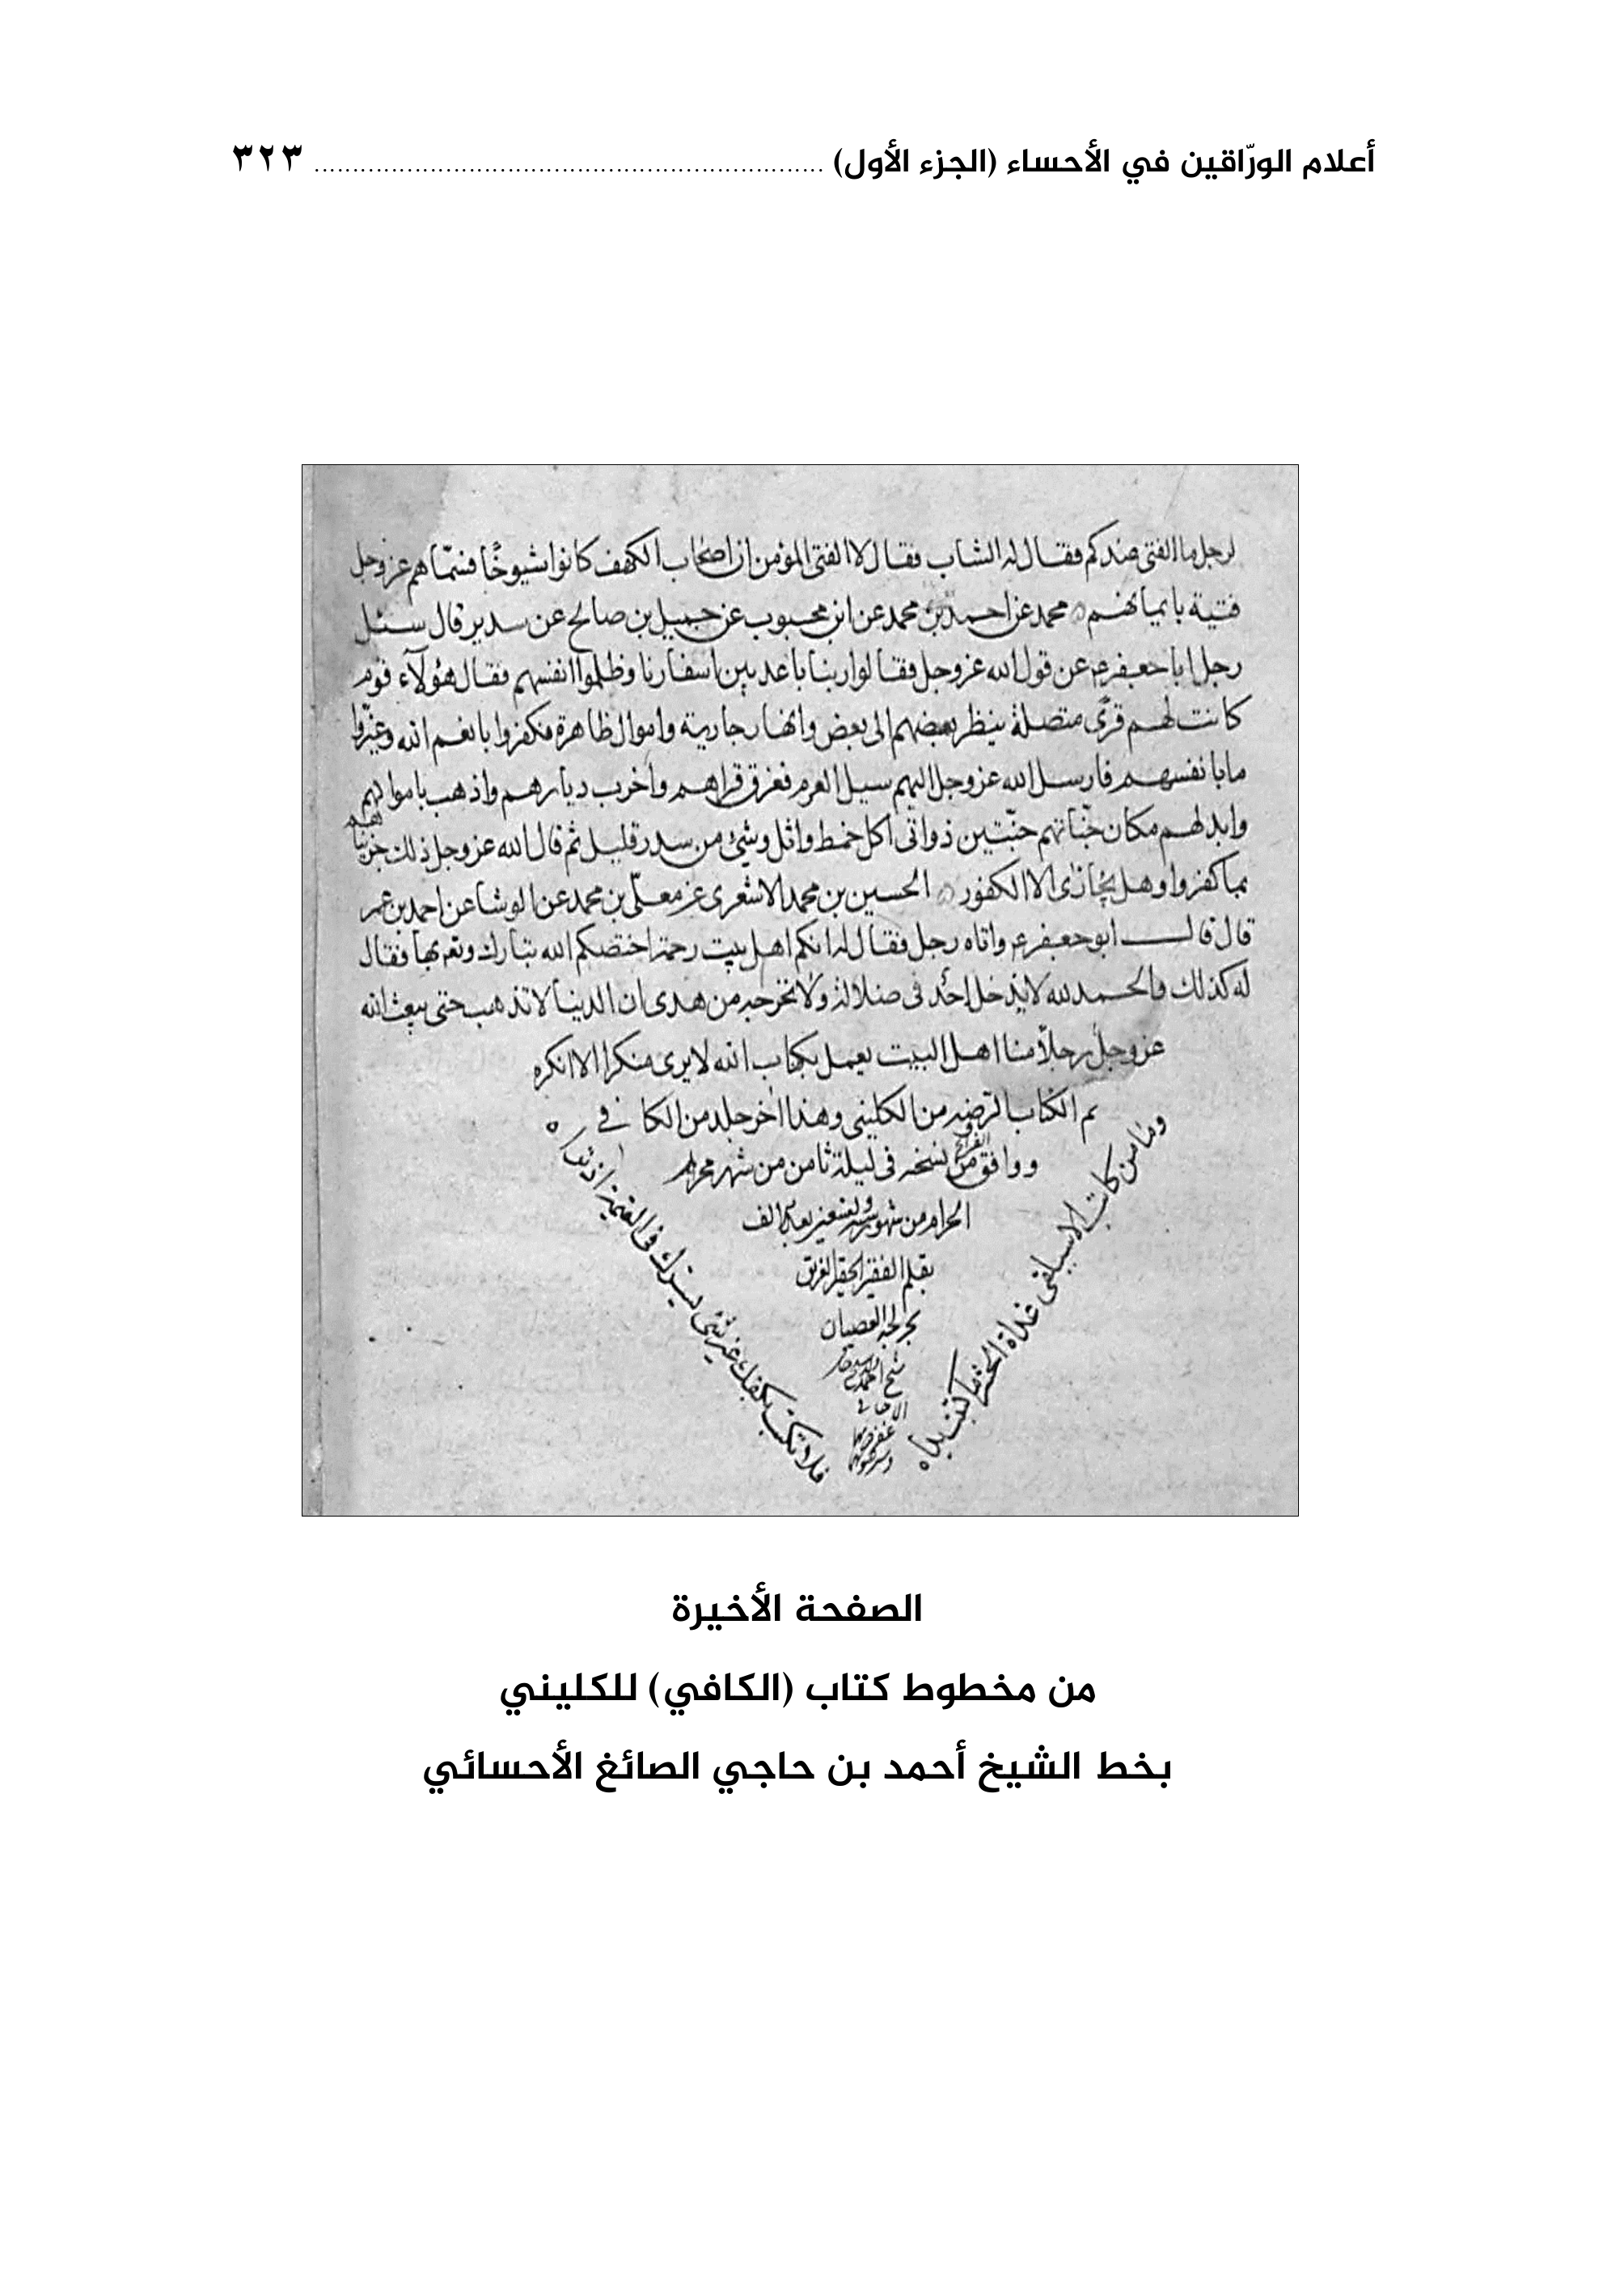 أعلام الورّاقين في الأحساء (الجزء الأول) ................................................................ ٣٢٣
لرجل ما الفتى عندكم فقال له الشاب فقال لا الفتى المؤمن ان اصحاب الكهف كانوا شيوخًا فسمّاهم عز وجل
فتية بايمانهم محمد عن احمد بن محمد عن ابن محبوب عن جميل بن صالح عن سدير قال سئل
رجل ابا جعفر ع عن قول الله عز وجل فقالوا ربنا باعد بين اسفارنا وظلموا انفسهم فقال هؤلآء قوم
كانت لهم قرًى متصلة ينظر بعضهم الى بعض وانهار جارية واموال ظاهرة فكفروا بانعم الله وغيّروا
ما بانفسهم فارسل الله عز وجل اليهم سيل العرم فغرق قراهم واخرب ديارهم واذهب باموالهم
وابدلهم مكان جنّاتهم جنّتين ذواتى اكل خمط واثل وشئ من سدر قليل ثم قال الله عز وجل ذلك جزيناهم
بما كفروا وهل يجازى الا الكفور الحسين بن محمد الاشعرى عن معلّى بن محمد عن الوشا عن احمد بن عمر
قال قال ابو جعفر ع واتاه رجل فقال له انكم اهل بيت رحمة اختصكم الله تبارك وتعـ بها فقال
له كذلك والحمد لله لا يدخل احد فى ضلالة ولا نخرجه من هدى ان الدنيا لا تذهب حتى يبعث الله
عز وجل رجلاً منا اهل البيت يعمل بكتاب الله لا يرى منكرا الا انكره
تم الكتاب الروضه من الكلينى وهذا اخر جلد من الكافى
ووافق الفراغ من نسخه فى ليلة ثامن من شهر محرم
الحرام من شهور سنة بعد الالف
بقلم الفقير الحقير الغريق
بحر لجة العصيان
وما من كاتب الا سيلقى غداة الحشر ما كتبت يداه
فلا تكتب بكفك غير شئ يسرك فى القيمة ان تراه
الصفحة الأخيرة
من مخطوط كتاب (الكافي) للكليني
بخط الشيخ أحمد بن حاجي الصائغ الأحسائي